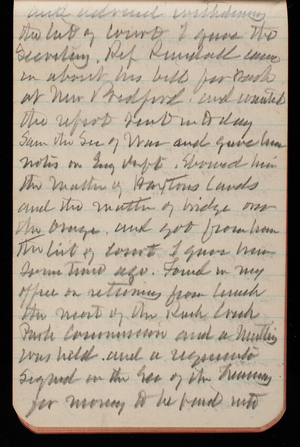 and advised withdrawing
the list of courts I gave the
Secretary. Rep Randall came
in about his bill for Dock
at New Bedford. and wanted
the report sent in to day
Saw the Sec of War and gave him
notes on Eng Dept. Showed him
the matter of Lands
and the matter of bridge over
the Osage. and got from him
the list of court I gave him
some time ago. Found in my
office on returning from lunch
the most of the Rock Creek
Park Commission and a Meeting
was held. and a requisition
signed on the Sec of the Treasury
for money to be paid into